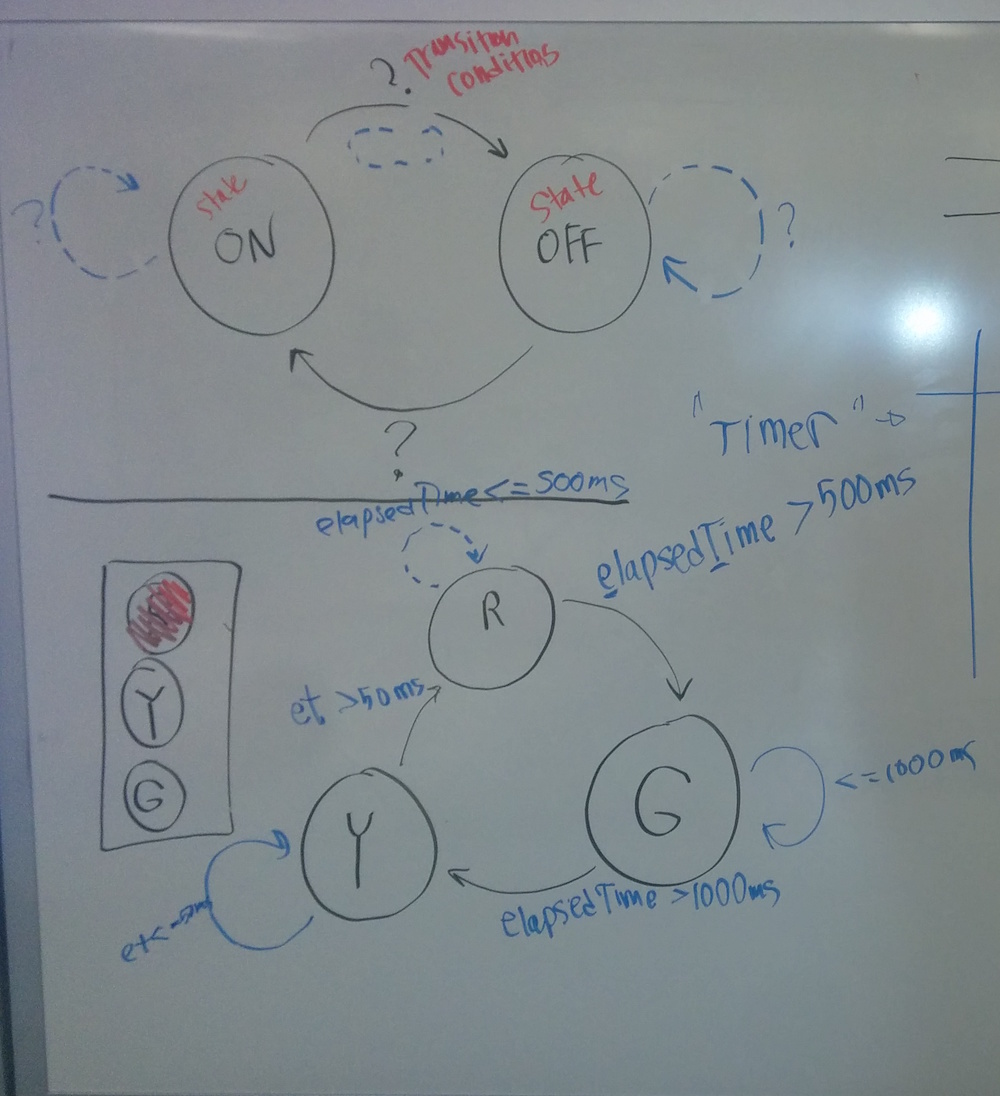 ? Transition
conditions
?
State
ON
State
OFF
?
?
"Timer"
elapsedTime <= 500ms
elapsedTime > 500ms
R
et >50ms
Y
G
Y
G
<=1000ms
elapsedTime >1000ms